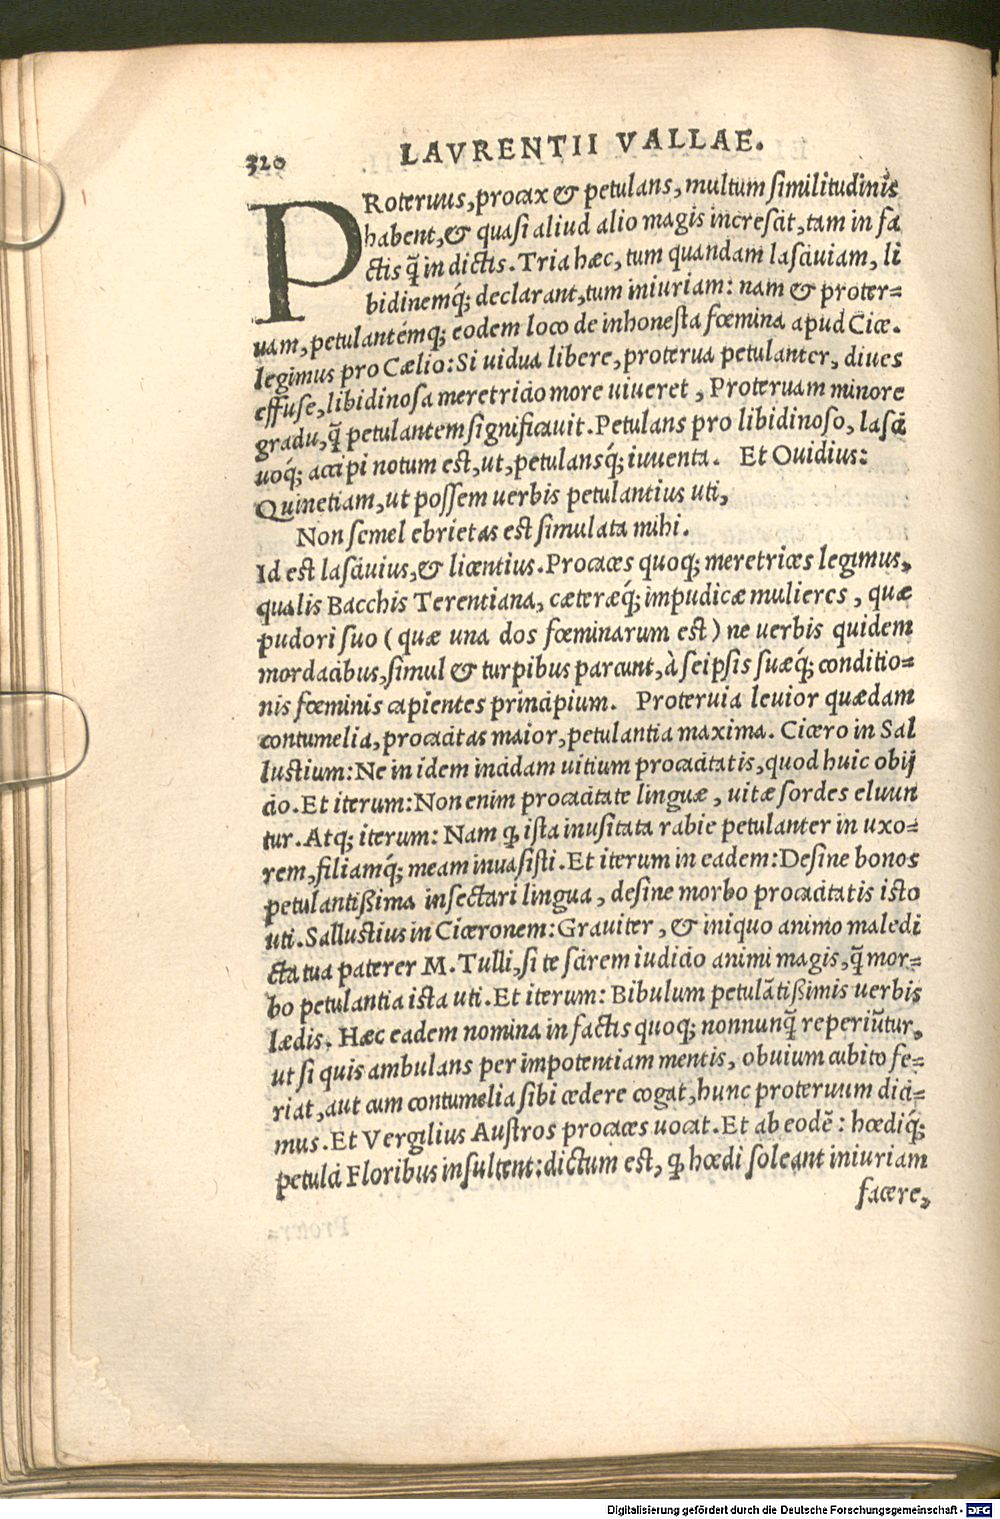 320
LAVRENTII VALLAE.
PRoteruus, procax & petulans, multum similitudinis
habent, & quasi aliud alio magis increscit, tam in fa
ctis q̃ in dictis. Tria hæc, tum quandam lasciuiam, li
bidinemq́; declarant, tum iniuriam: nam & proter=
uam, petulantémq; eodem loco de inhonesta fœmina apud Cice.
legimus pro Cælio: Si uidua libere, proterua petulanter, diues
effuse, libidinosa meretricio more uiueret, Proteruam minore
gradu, q̃ petulantem significauit. Petulans pro libidinoso, lasci
uoq́; accipi notum est, ut, petulansq́; iuuenta. Et Ouidius:
Quinetiam, ut possem uerbis petulantius uti,
Non semel ebrietas est simulata mihi.
Id est lasciuius, & licentius. Procaces quoq; meretrices legimus,
qualis Bacchis Terentiana, cæteræq́; impudicæ mulieres, quæ
pudori suo (quæ una dos fœminarum est) ne uerbis quidem
mordacibus, simul & turpibus parcunt, à seipsis suæq́; conditio=
nis fœminis capientes principium. Proteruia leuior quædam
contumelia, procacitas maior, petulantia maxima. Cicero in Sal
lustium: Ne in idem incidam uitium procacitatis, quod huic obij
cio. Et iterum: Non enim procacitate linguæ, uitæ sordes eluun
tur. Atq; iterum: Nam ꝙ ista inusitata rabie petulanter in uxo=
rem, filiamq́; meam inuasisti. Et iterum in eadem: Desine bonos
petulantißima insectari lingua, desine morbo procacitatis isto
uti. Sallustius in Ciceronem: Grauiter, & iniquo animo maledi
cta tua paterer M. Tulli, si te scirem iudicio animi magis, q̃ mor=
bo petulantia ista uti. Et iterum: Bibulum petulãtißimis uerbis
lædis. Hæc eadem nomina in factis quoq; nonnunq̃ reperiũtur,
ut si quis ambulans per impotentiam mentis, obuium cubito fe=
riat, aut cum contumelia sibi cedere cogat, hunc proteruum dici=
mus. Et Vergilius Austros procaces uocat. Et ab eodẽ: hœdiq́;
petulci Floribus insultent: dictum est, ꝙ hœdi soleant iniuriam
facere,
Digitalisierung gefördert durch die Deutsche Forschungsgemeinschaft - DFG